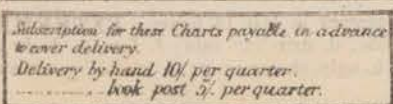 Subscription for these Charts payable in advance
to cover delivery.
Delivery by hand 10/. per quarter.
............. book post 5/. per quarter.